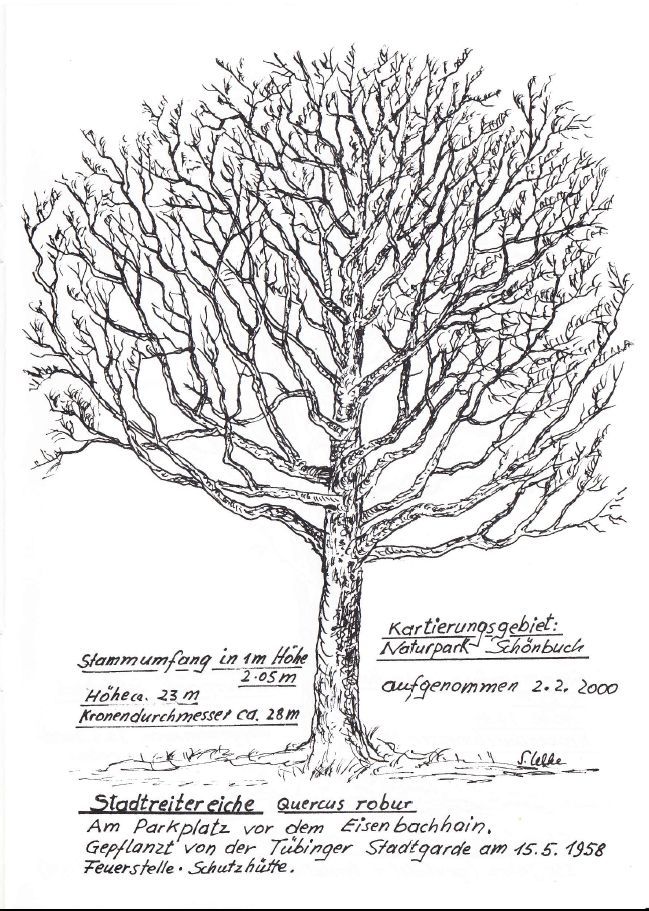 Kartierungsgebiet:
Naturpark Schönbuch
aufgenommen 2.2. 2000
Stammumfang in 1m Höhe
2.05m
Höhe ca. 23 m
Kronendurchmesser ca. 28m
Stadtreitereiche Quercus robur
Am Parkplatz vor dem Eisenbachhain.
Gepflanzt von der Tübinger Stadtgarde am 15.5. 1958
Feuerstelle · Schutzhütte.